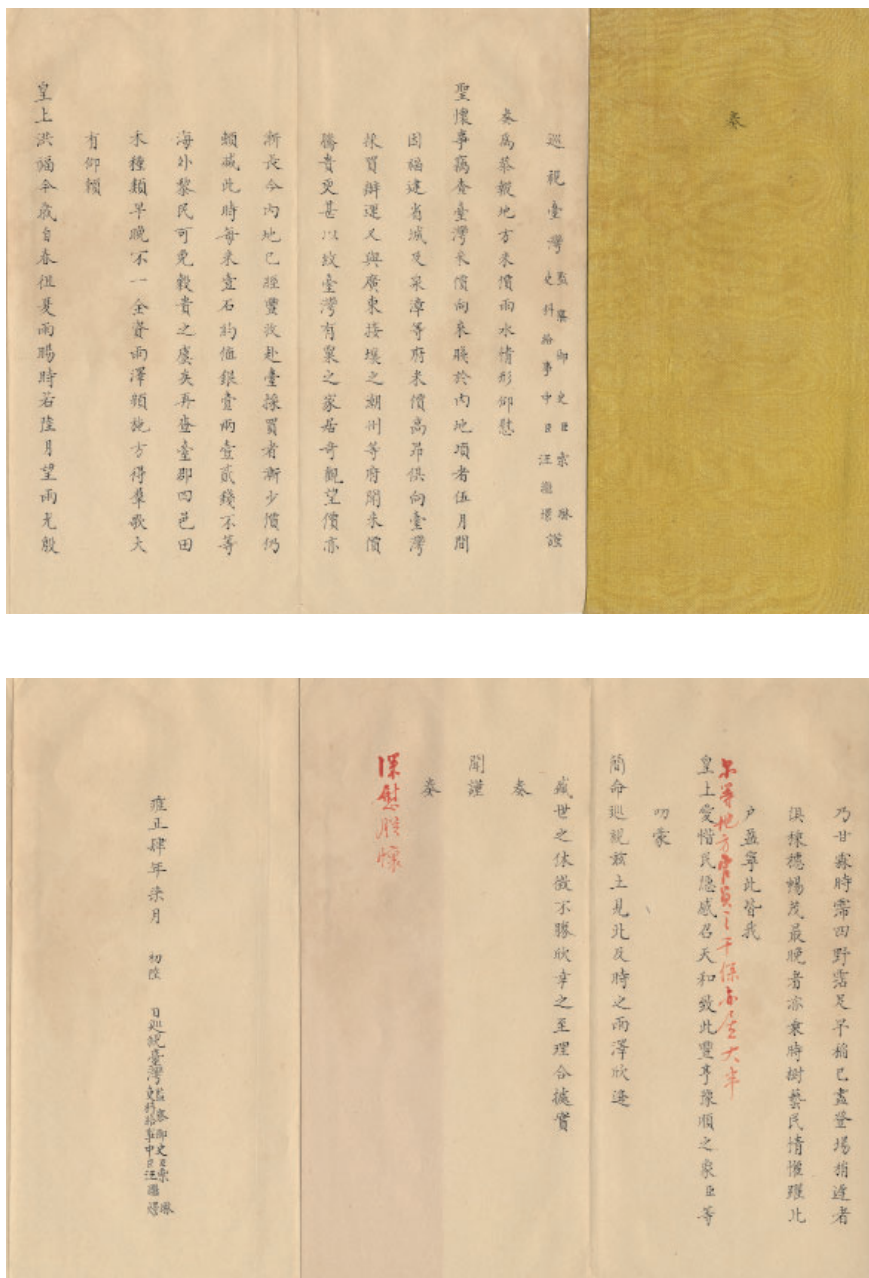 奏
巡視臺灣
監察御史臣索琳
吏科給事中臣汪繼燝
謹
奏為恭報地方米價雨水情形仰慰
聖懷事竊查臺灣米價向來賤於內地項者伍月間
因福建省城及泉漳等府米價高昂俱向臺灣
採買辦運又與廣東接壤之潮州等府聞米價
騰貴更甚以致臺灣有粟之家居奇觀望價亦
漸長今內地已經豐收赴臺採買者漸少價仍
頓減此時每米壹石約值銀壹兩壹貳錢不等
海外黎民可免穀貴之虞矣再查臺郡四邑田
禾種類早晚不一全資雨澤頻施方得羣歌大
有仰賴
皇上洪福今歲自春徂夏雨暘時若陸月望雨尤殷
乃甘霖時霈四野霑足早稻已盡登場稍遲者
俱棟穗暢茂最晚者亦乘時樹藝民情懽躍比
戶盈寧此皆我
爾等地方官員之干係亦居大半
皇上愛惜民隱感召天和致此豐亨豫順之象臣等
叨蒙
簡命巡視茲土見此及時之雨澤欣逢
盛世之休徵不勝欣幸之至理合據實
奏
聞謹
奏
深慰朕懷
雍正肆年柒月 初陸 日巡視臺灣
監察御史臣索琳
吏科給事中臣汪繼燝